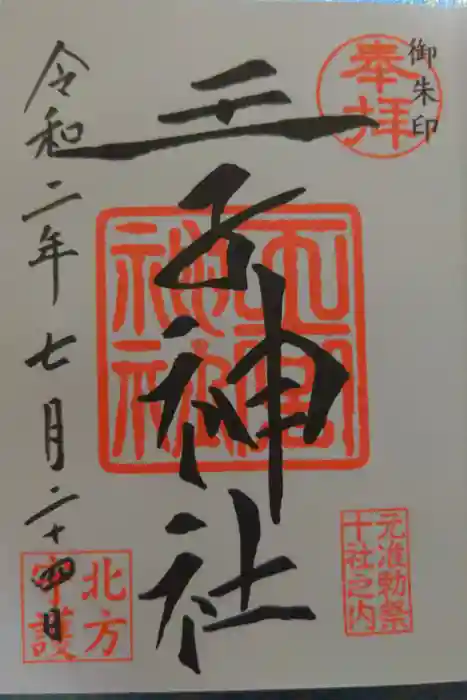 御朱印
奉拝
王子神社
令和二年七月二十四日
元准勅祭
十社之内
北方
守護